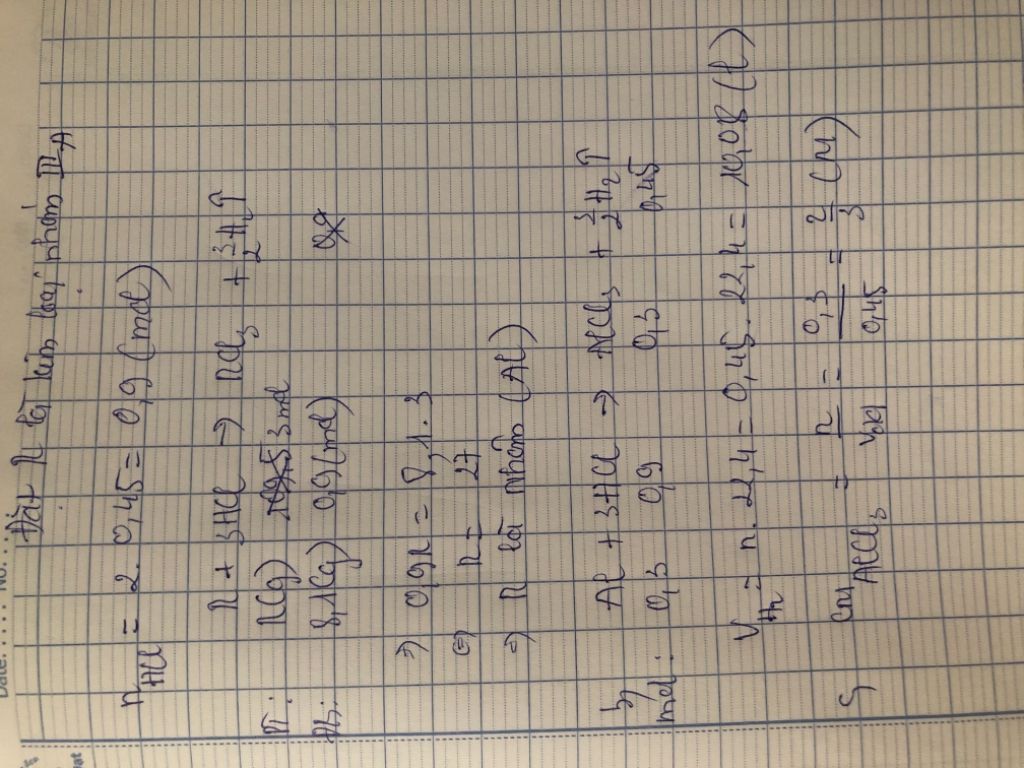 Date: .... No: ....
Đặt R là kim loại nhóm III A
nHCl = 2. 0,45 = 0,9 (mol)
R + 3HCl → RCl3 + 3/2 H2↑
PT: R(g) 3 mol
Đb: 8,1(g) 0,9(mol) 0,9
⇒ 0,9R = 8,1.3
⇔ R = 27
⇒ R là nhôm (Al)
b, Al + 3HCl → AlCl3 + 3/2 H2↑
mol: 0,3 0,9 0,3 0,45
VH2 = n. 22,4 = 0,45. 22,4 = 10,08 (l)
c, CM AlCl3 = n/Vdd = 0,3/0,45 = 2/3 (M)